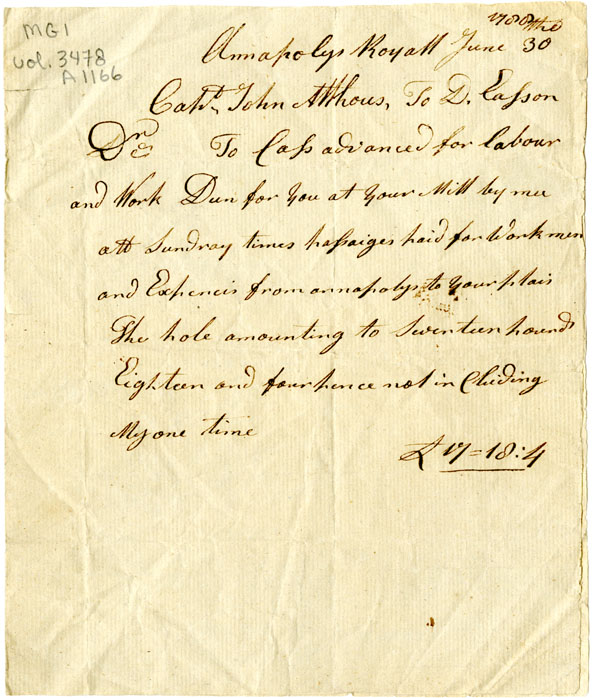 MG1
vol. 3478
A1166
1788
Annapolys Royall June 30 the
Capt. John Althous, To D. Easson
Dr To Cass advanced for labour
and Work Dun for you at your Mill by mee
att Sundray times passaiges paid for Workmen
and Expencis from annapolys to your plais
The hole amounting to Seventeen pounds
Eighteen and fourpence not in Cluding
My one time
£ 17=18:4